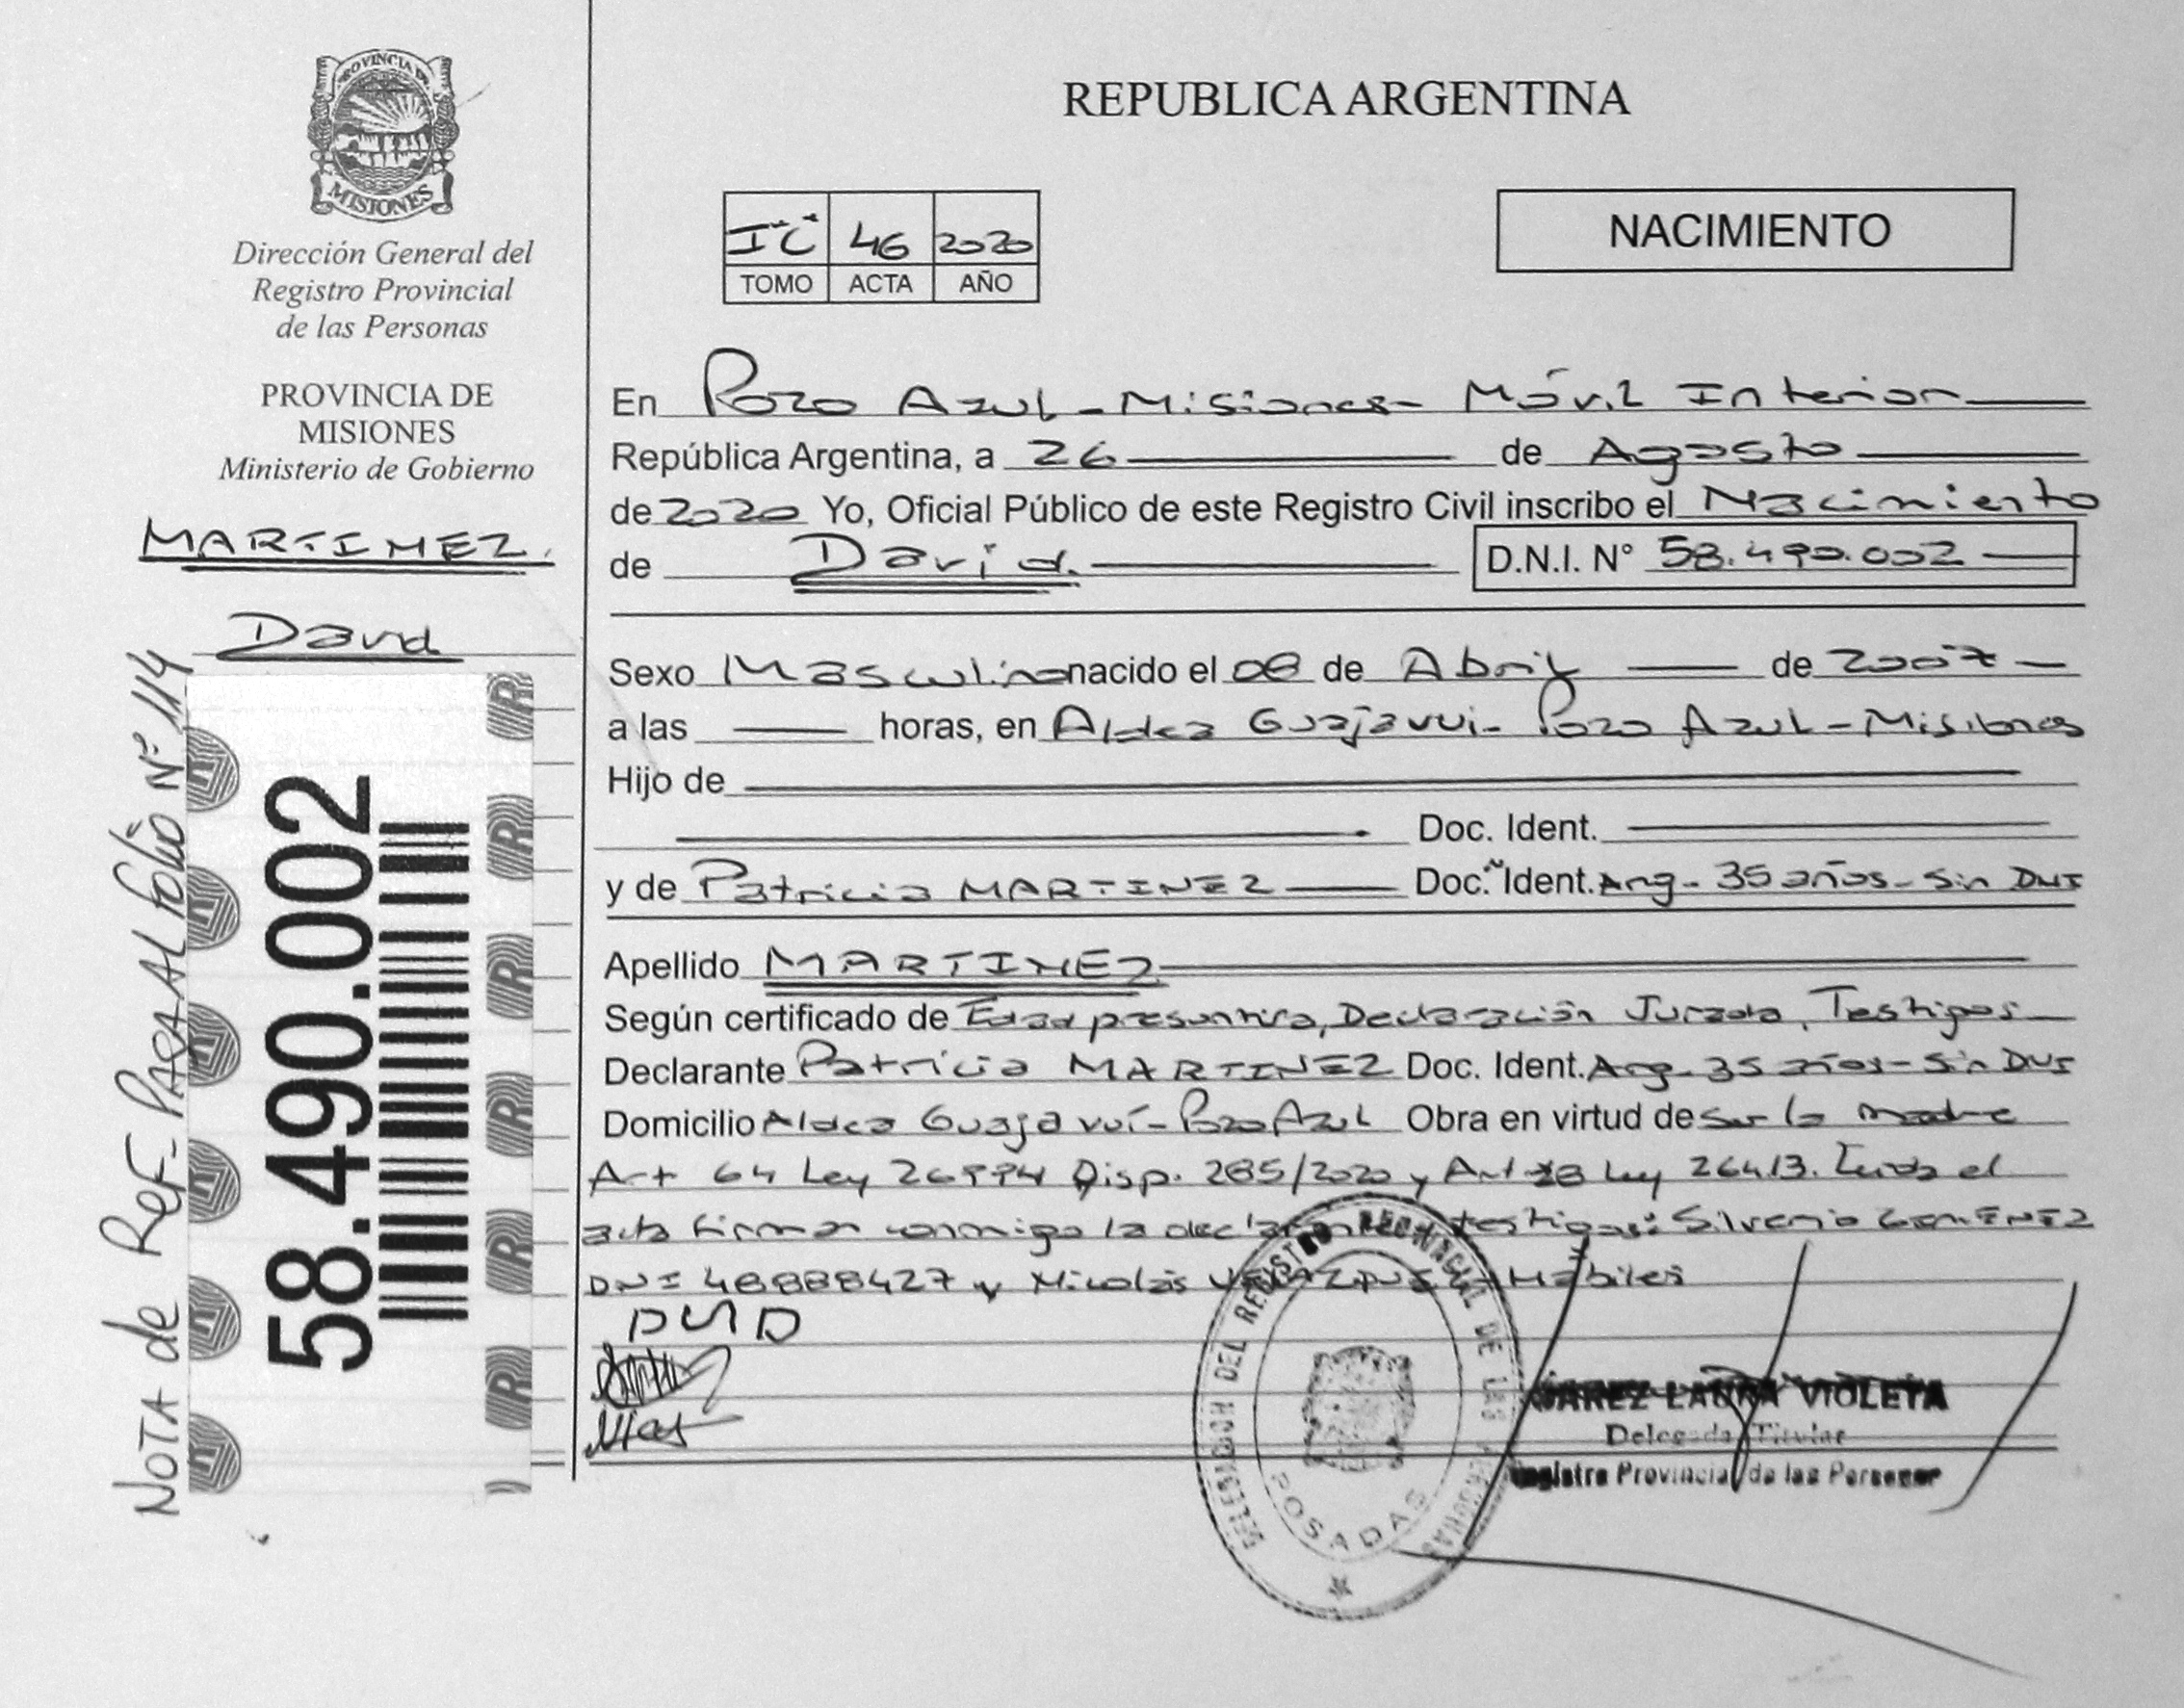 PROVINCIA DE
MISIONES
Dirección General del
Registro Provincial
de las Personas
PROVINCIA DE
MISIONES
Ministerio de Gobierno
MARTINEZ.
David
NOTA de REF- PASA AL Folio Nº 114
58.490.002
REPUBLICA ARGENTINA
I"C" 46 2020
TOMO ACTA AÑO
NACIMIENTO
En Pozo Azul - Misiones - Móvil Interior
República Argentina, a 26 de Agosto
de 2020 Yo, Oficial Público de este Registro Civil inscribo el Nacimiento
de David. D.N.I. N° 58.490.002
Sexo Masculino nacido el 08 de Abril de 2007
a las horas, en Aldea Guajavui - Pozo Azul - Misiones
Hijo de
Doc. Ident.
y de Patricia MARTINEZ Doc. Ident. Arg - 35 años - Sin DNI
Apellido MARTINEZ
Según certificado de Edad presuntiva, Declaración Jurada, Testigos
Declarante Patricia MARTINEZ Doc. Ident. Arg - 35 años - Sin DNI
Domicilio Aldea Guajavuí - Pozo Azul Obra en virtud de ser la madre
Art 64 Ley 26994 Disp. 285/2020 y Art 28 Ley 26413. Leída el
acta firman conmigo la declarante testigos: Silverio GIMENEZ
DNI 48888427 y Nicolás Hábiles
DELEGADOR DEL REGISTRO PROVINCIAL DE LAS PERSONAS
POSADAS
LAURA VIOLETA
Delegada Titular
Registro Provincial de las Personas